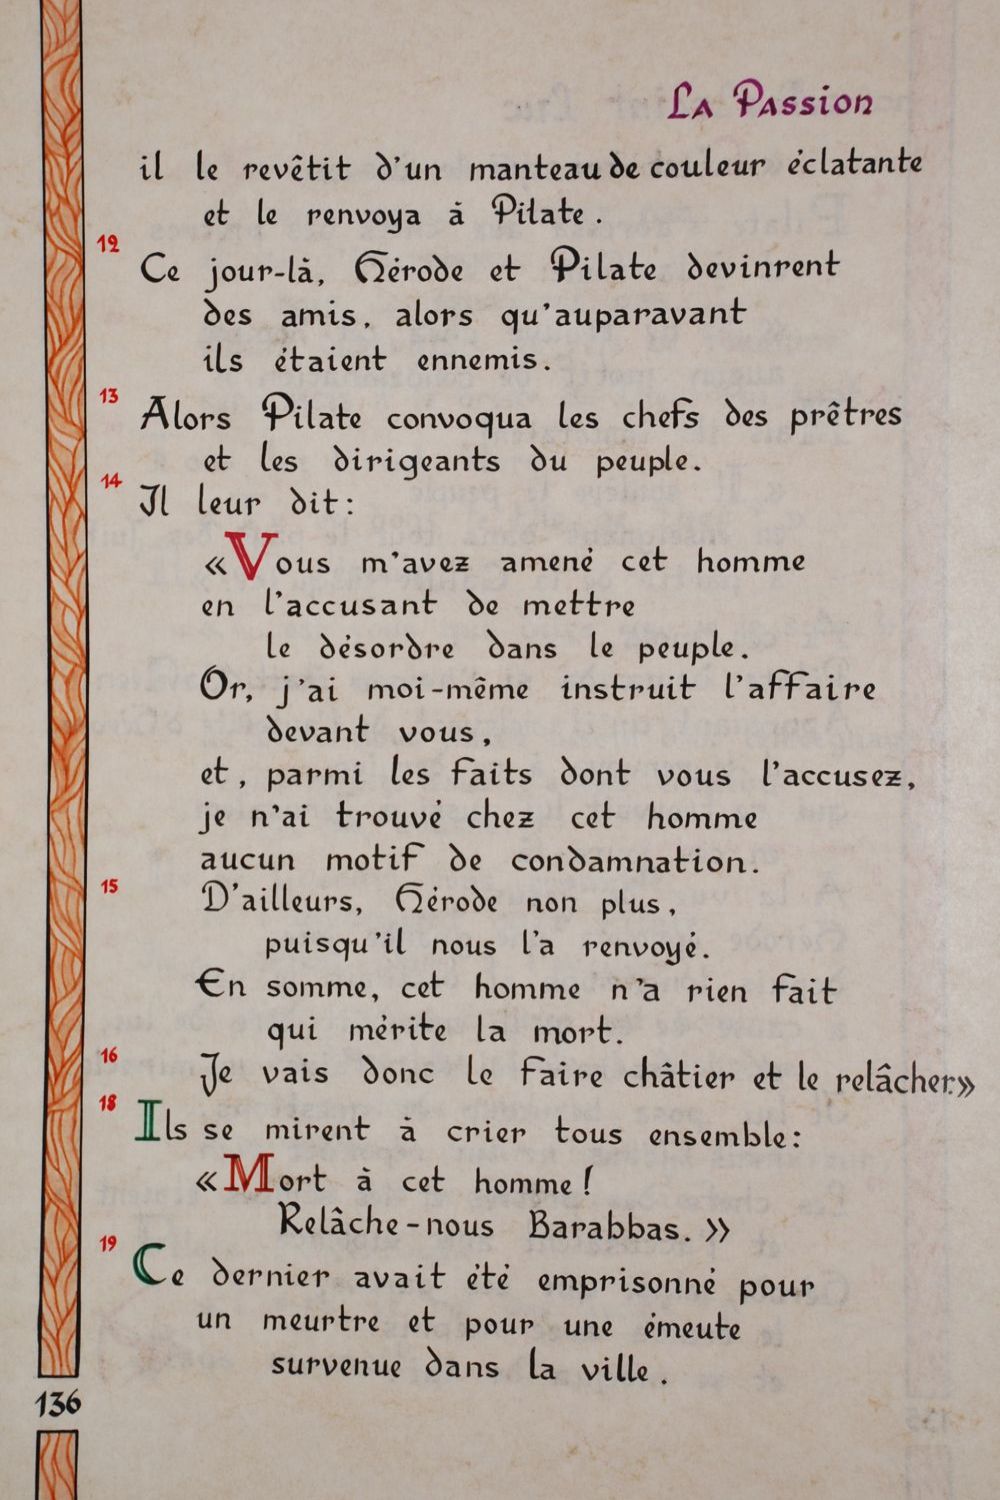 La Passion
il le revêtit d'un manteau de couleur éclatante
et le renvoya à Pilate.
12
Ce jour-là, Hérode et Pilate devinrent
des amis, alors qu'auparavant
ils étaient ennemis.
13
Alors Pilate convoqua les chefs des prêtres
et les dirigeants du peuple.
14
Il leur dit:
«Vous m'avez amené cet homme
en l'accusant de mettre
le désordre dans le peuple.
Or, j'ai moi-même instruit l'affaire
devant vous,
et, parmi les faits dont vous l'accusez,
je n'ai trouvé chez cet homme
aucun motif de condamnation.
15
D'ailleurs, Hérode non plus,
puisqu'il nous l'a renvoyé.
En somme, cet homme n'a rien fait
qui mérite la mort.
16
Je vais donc le faire châtier et le relâcher.»
18
Ils se mirent à crier tous ensemble:
«Mort à cet homme!
Relâche-nous Barabbas.»
19
Ce dernier avait été emprisonné pour
un meurtre et pour une émeute
survenue dans la ville.
136